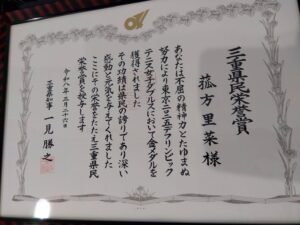 三重県民栄誉賞
菰方里菜様
あなたは不屈の精神力とたゆまぬ
努力により東京二〇二五デフリンピック
テニス女子ダブルスにおいて金メダルを
獲得されました
その功績は県民の誇りであり深い
感動と元気を与えてくれました
ここにその栄誉をたたえ三重県民
栄誉賞を授与します
令和八年三月二十六日
三重県知事 一見勝之